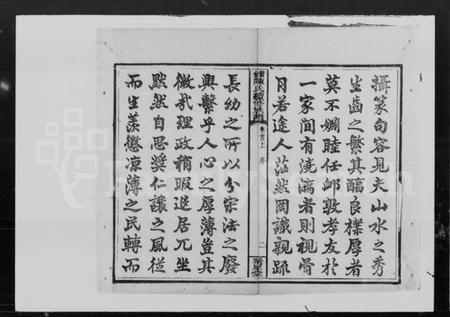 攝篆句容見夫山水之秀
生齒之繁其醕良樸厚者
莫不婣睦任卹敦孝友於
一家間有澆漓者則視骨
月若途人茫然罔識親疏
卷首上 序
二
長幼之所以分宗法之廢
興繫乎人心之厚薄豈其
微哉理政稍暇退居兀坐
黙然自思奨仁讓之風從
而生羨懲涼薄之民轉而